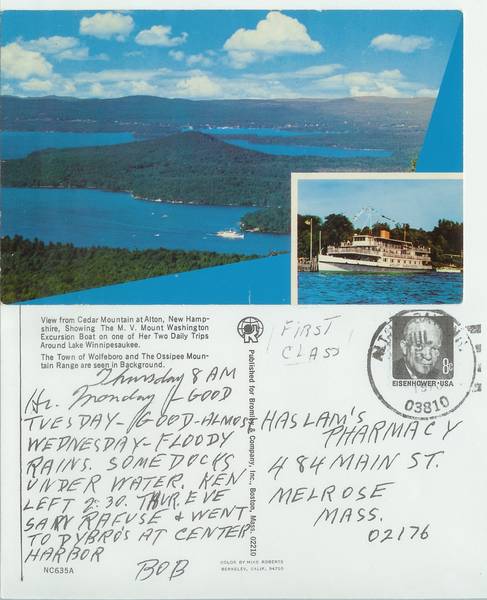 View from Cedar Mountain at Alton, New Hamp-
shire, Showing The M. V. Mount Washington
Excursion Boat on one of Her Two Daily Trips
Around Lake Winnipesaukee.
The Town of Wolfeboro and The Ossipee Moun-
tain Range are seen in Background.
Thursday 8 AM
Hi. Monday - GOOD
TUESDAY - GOOD - ALMOST
WEDNESDAY - FLOODY
RAINS. SOME DOCKS
UNDER WATER. KEN
LEFT 2:30. THUR. EVE
RAFUSE & WENT
TO DYBRO'S AT CENTER
HARBOR
BOB
NC635A
Published for Bromley & Company, Inc., Boston, Mass. 02210
COLOR BY MIKE ROBERTS
BERKELEY, CALIF. 94710
FIRST
CLASS
8¢
EISENHOWER·USA
03810
HASLAM'S
PHARMACY
484 MAIN ST.
MELROSE
MASS.
02176